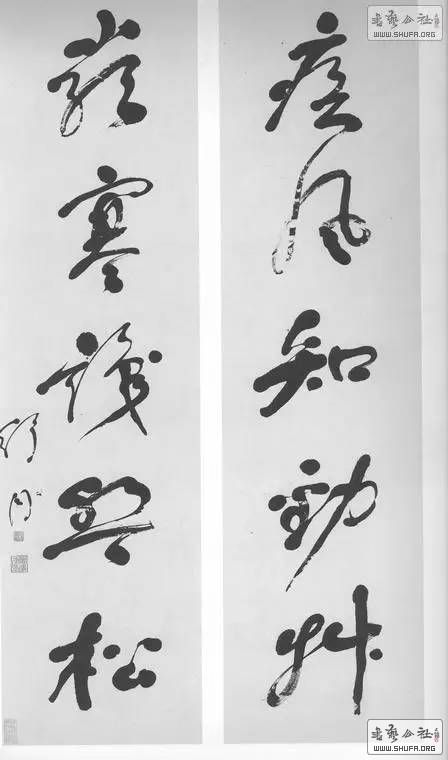 疾风知劲艸
嚴寒識堅松
舒同
書藝公社
WWW.SHUFA.ORG
書藝公社
WWW.SHUFA.ORG